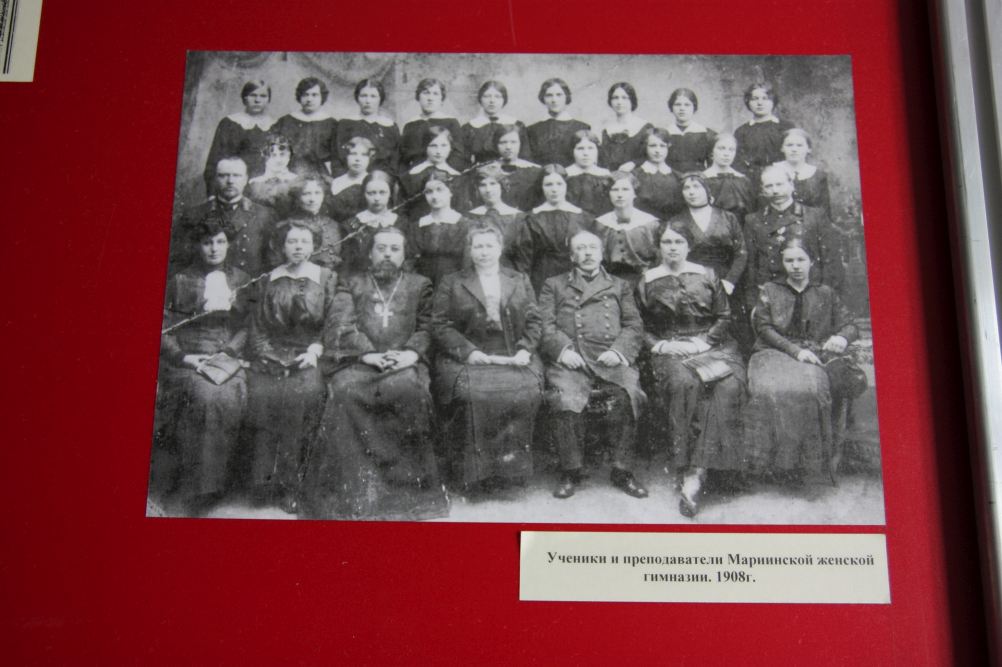 Ученики и преподаватели Мариинской женской
гимназии. 1908г.